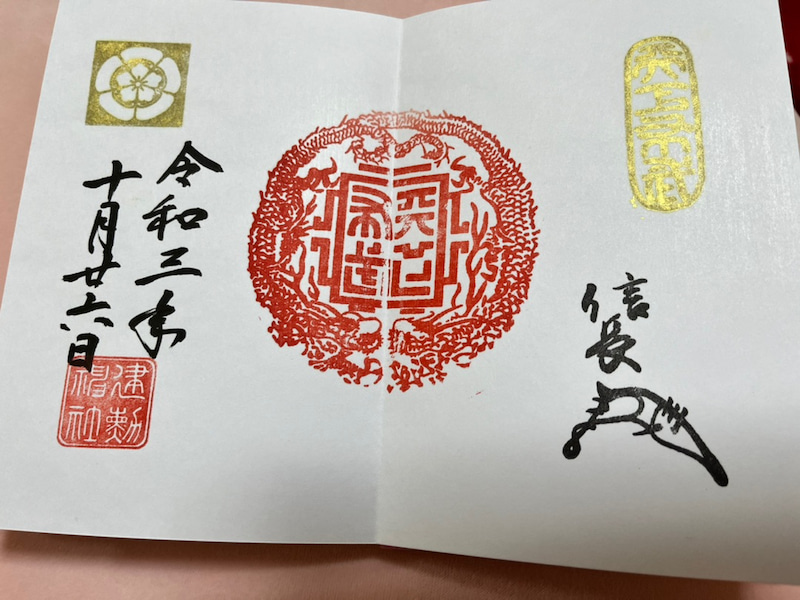 天下布武
信長
天下
布武
令和三年
十月廿六日
建勲
神社